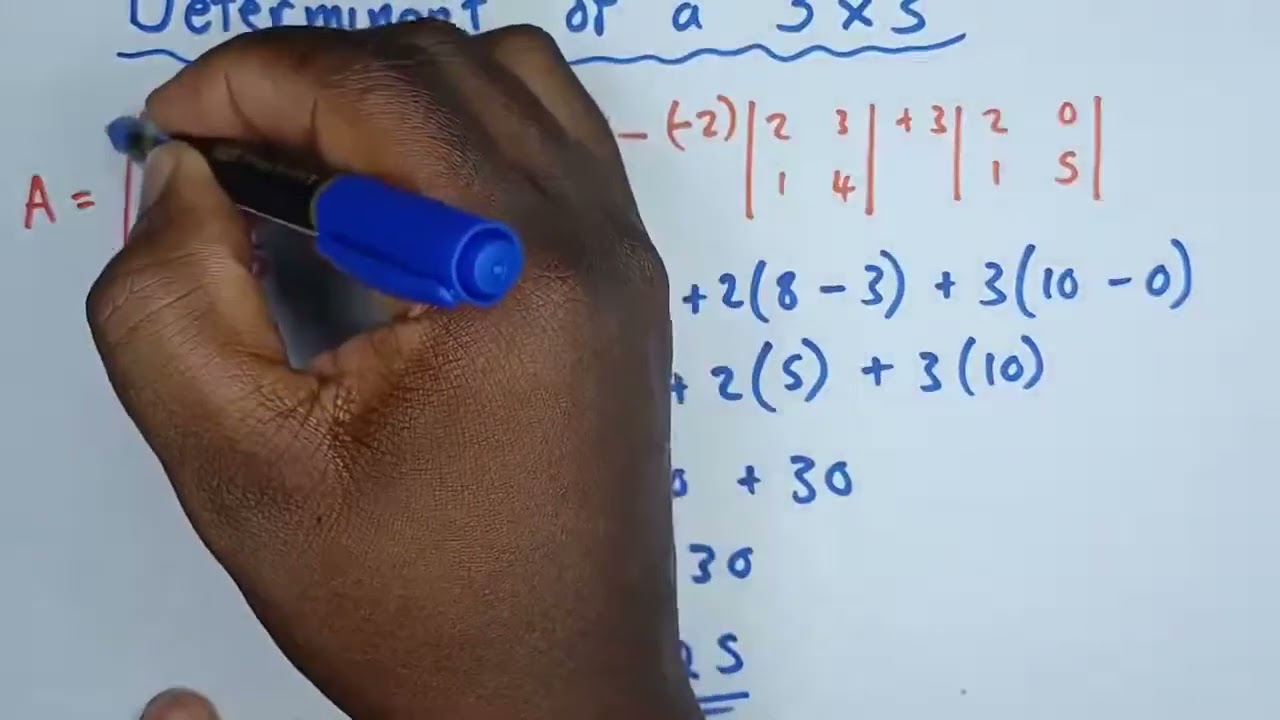 Determinant of a 3x3
A = - (-2) | 2 3 | + 3 | 2 0 |
1 4 1 5
+ 2(8 - 3) + 3(10 - 0)
+ 2(5) + 3(10)
+ 30
30
5